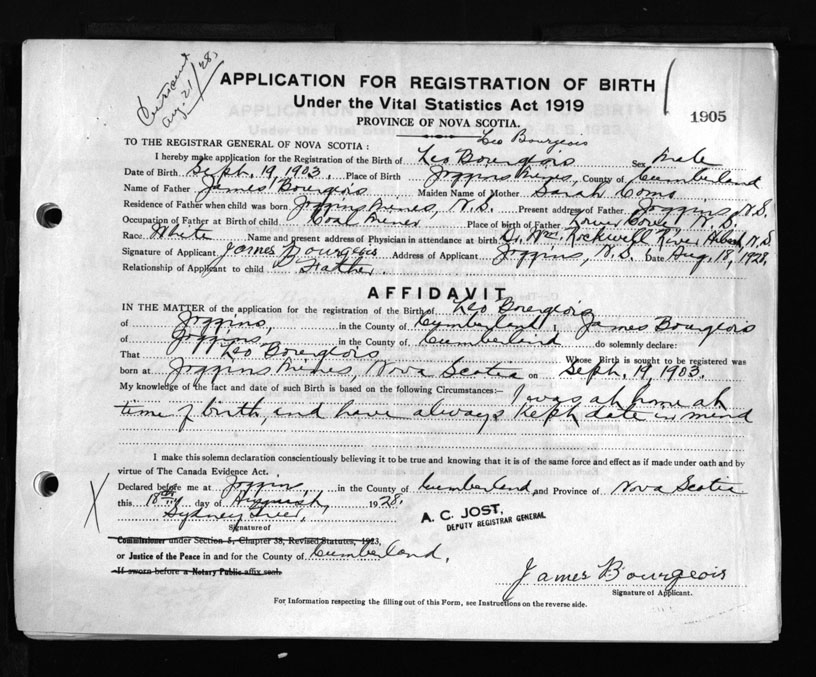 Aug. 21/28.
APPLICATION FOR REGISTRATION OF BIRTH
Under the Vital Statistics Act 1919
1905
PROVINCE OF NOVA SCOTIA.
Leo Bourgeois
TO THE REGISTRAR GENERAL OF NOVA SCOTIA :
I hereby make application for the Registration of the Birth of Leo Bourgeois Sex Male
Date of Birth Sept. 19, 1903. Place of Birth Joggins Mines, County of Cumberland
Name of Father James Bourgois Maiden Name of Mother Sarah
Residence of Father when child was born Joggins Mines, N.S. Present address of Father Joggins, N.S.
Occupation of Father at Birth of child Coal Miner Place of birth of Father Lower Cove, N.S.
Race White Name and present address of Physician in attendance at birth Dr. Wm. Rockwell River Hebert, N.S.
Signature of Applicant James Bourgeois Address of Applicant Joggins, N.S. Date Aug. 18, 1928.
Relationship of Applicant to child Father
AFFIDAVIT
IN THE MATTER of the application for the registration of the Birth of Leo Bourgeois
of Joggins, in the County of Cumberland I, James Bourgeois
of Joggins, in the County of Cumberland do solemnly declare:
That Leo Bourgeois Whose Birth is sought to be registered was
born at Joggins Mines, Nova Scotia on Sept. 19 1903.
My knowledge of the fact and date of such Birth is based on the following Circumstances:— I was at home at
time of birth, and have always kept date in mind
I make this solemn declaration conscientiously believing it to be true and knowing that it is of the same force and effect as if made under oath and by
virtue of The Canada Evidence Act.
Declared before me at Joggins, in the County of Cumberland, and Province of Nova Scotia
this 18th day of August, 1928.
Sydney
A. C. JOST,
DEPUTY REGISTRAR GENERAL
Signature of
Commissioner under Section 5, Chapter 38, Revised Statutes, 1923,
or Justice of the Peace in and for the County of Cumberland.
If sworn before a Notary Public affix seal.
James Bourgeois
Signature of Applicant.
For Information respecting the filling out of this Form, see Instructions on the reverse side.